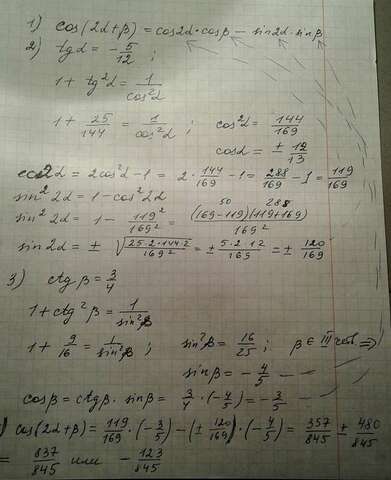 1) cos(2α+β) = cos2α·cosβ − sin2α·sinβ
2) tgα = −5/12 ;
1 + tg²α = 1/cos²α
1 + 25/144 = 1/cos²α ; cos²α = 144/169
cosα = ± 12/13
cos2α = 2cos²α − 1 = 2·144/169 − 1 = 288/169 − 1 = 119/169
sin²2α = 1 − cos²2α
50 288
sin²2α = 1 − 119²/169² = (169−119)(119+169)/169²
sin2α = ± √(25·2·144·2/169²) = ± 5·2·12/169 = ± 120/169
3) ctgβ = 3/4
1 + ctg²β = 1/sin²β
1 + 9/16 = 1/sin²β ; sin²β = 16/25 ; β ∈ III четв. ⇒
sinβ = −4/5
cosβ = ctgβ · sinβ = 3/4 · (−4/5) = −3/5
) cos(2α+β) = 119/169 · (−3/5) − (± 120/169) · (−4/5) = 357/845 ± 480/845
= 837/845 или − 123/845